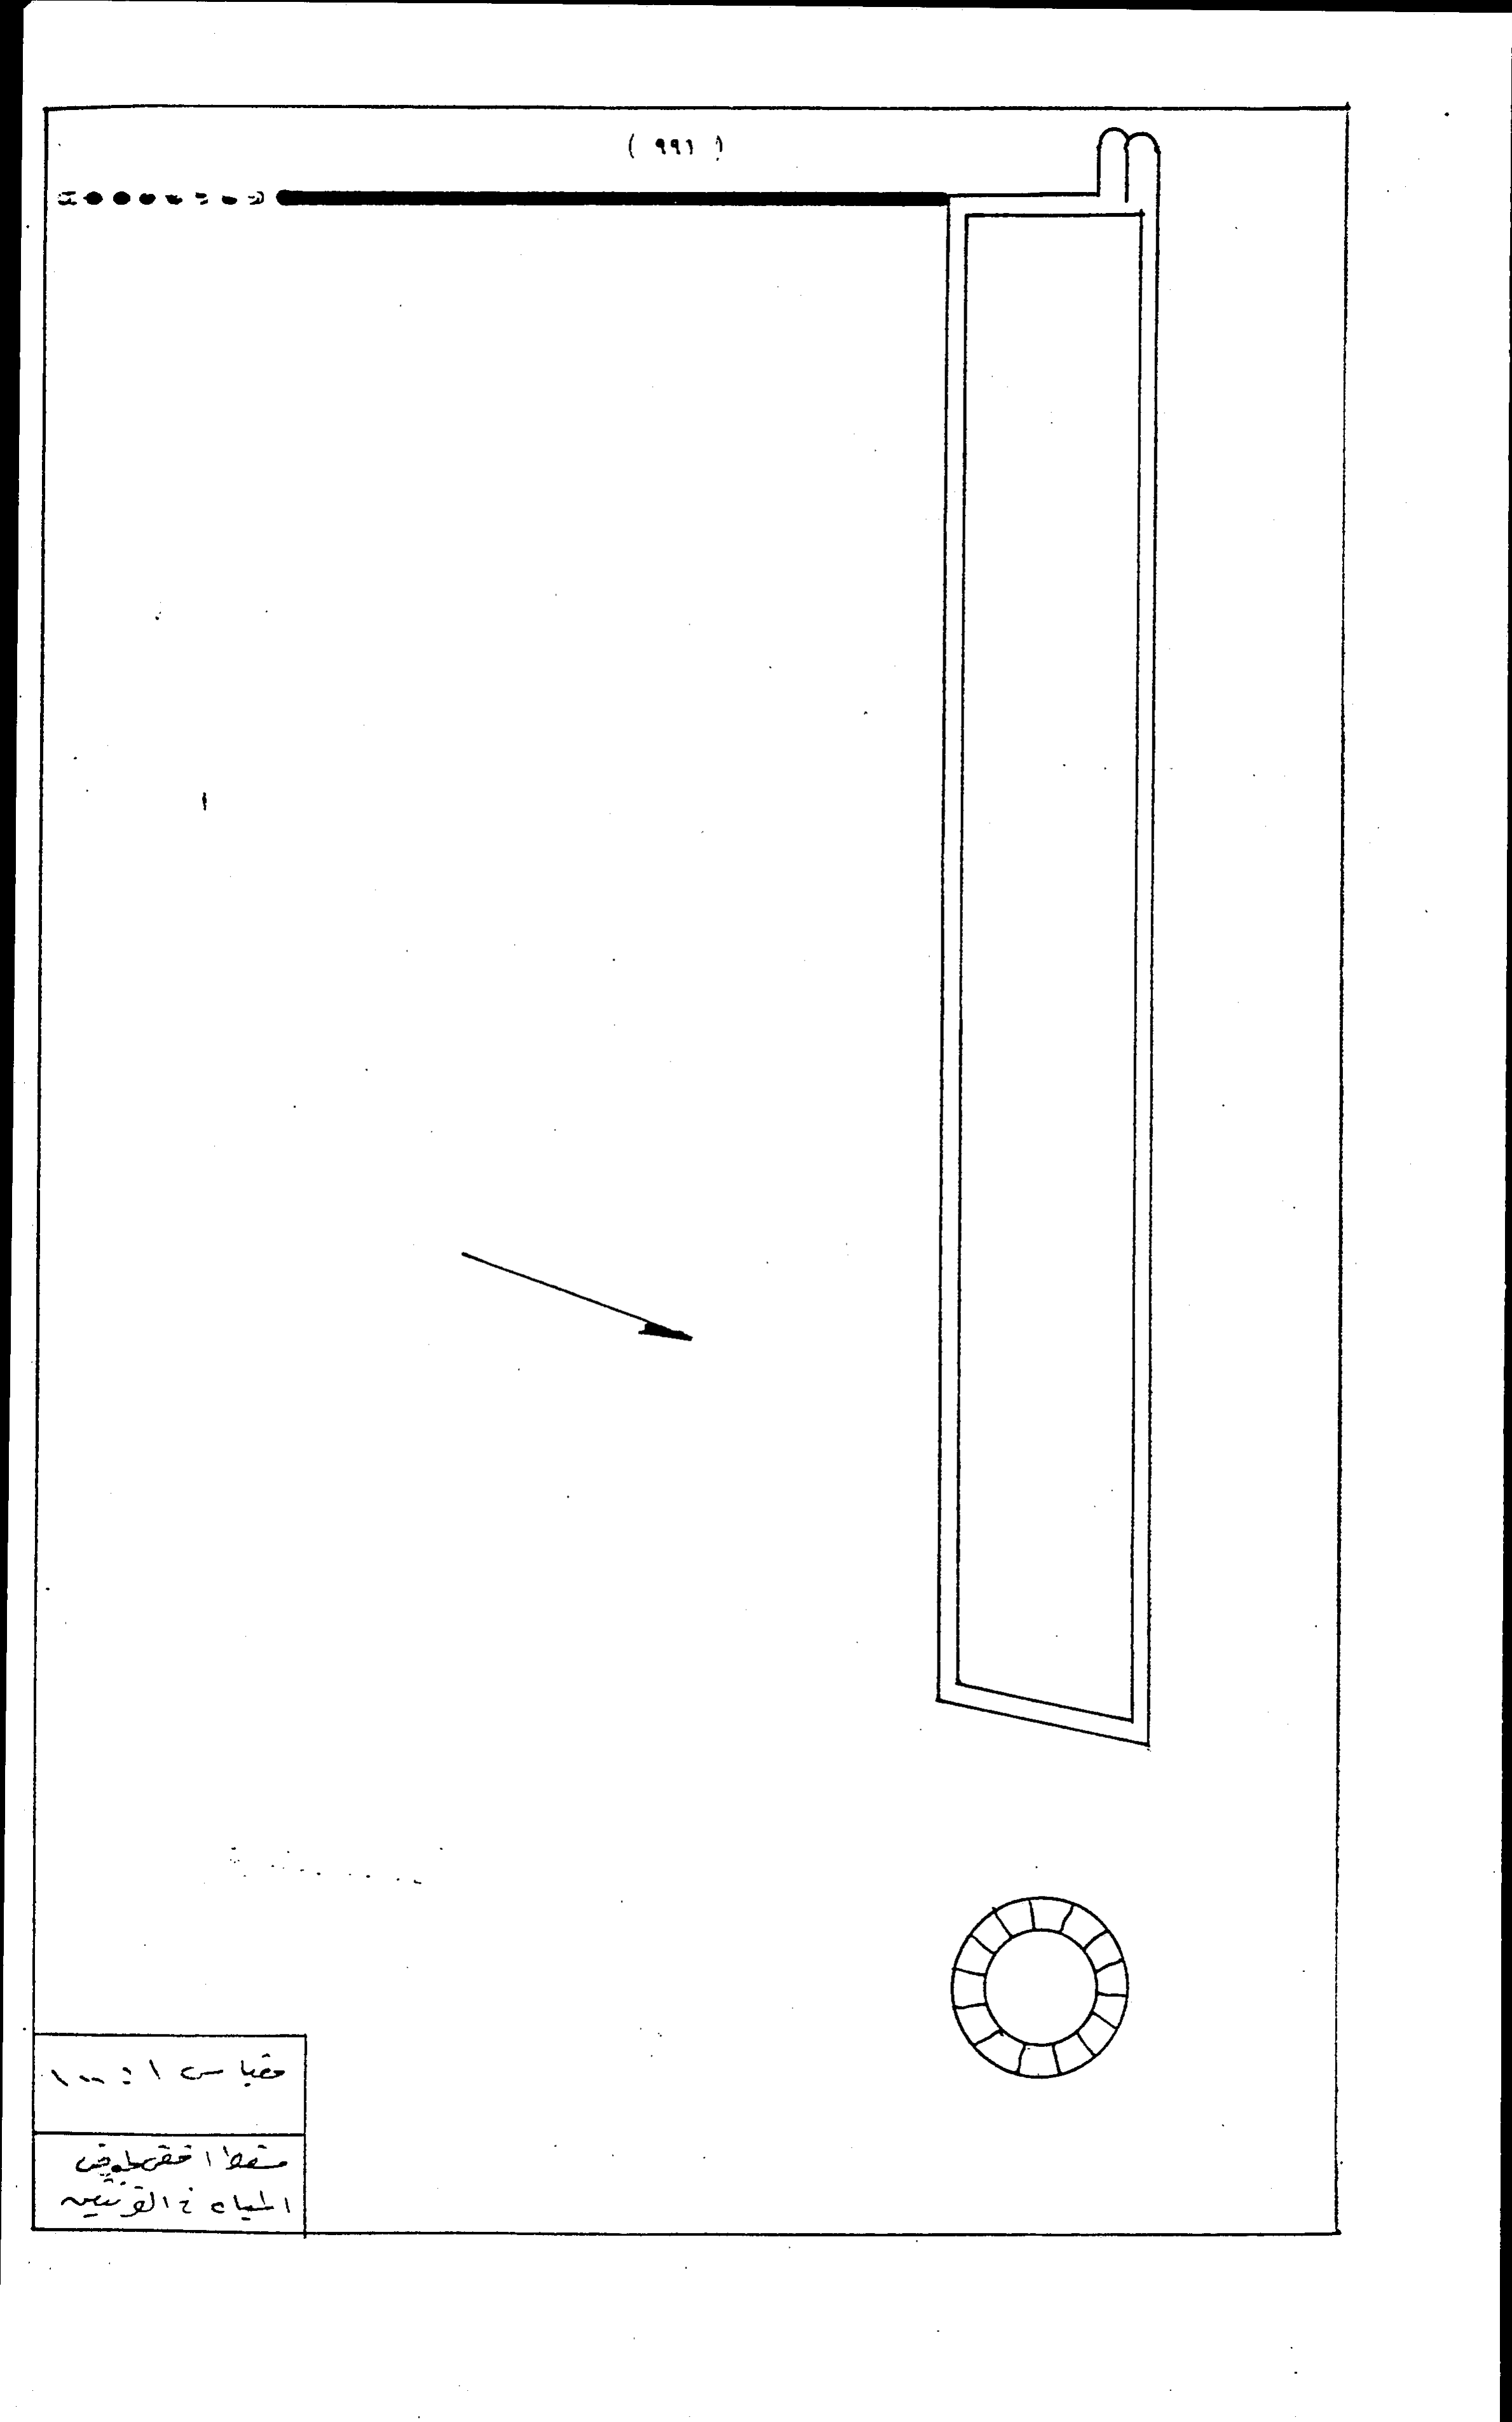 ( ٩٩١ )
مقياس ١ : ١٠٠
مسقط افقي لحوض
المياه في القرنتين